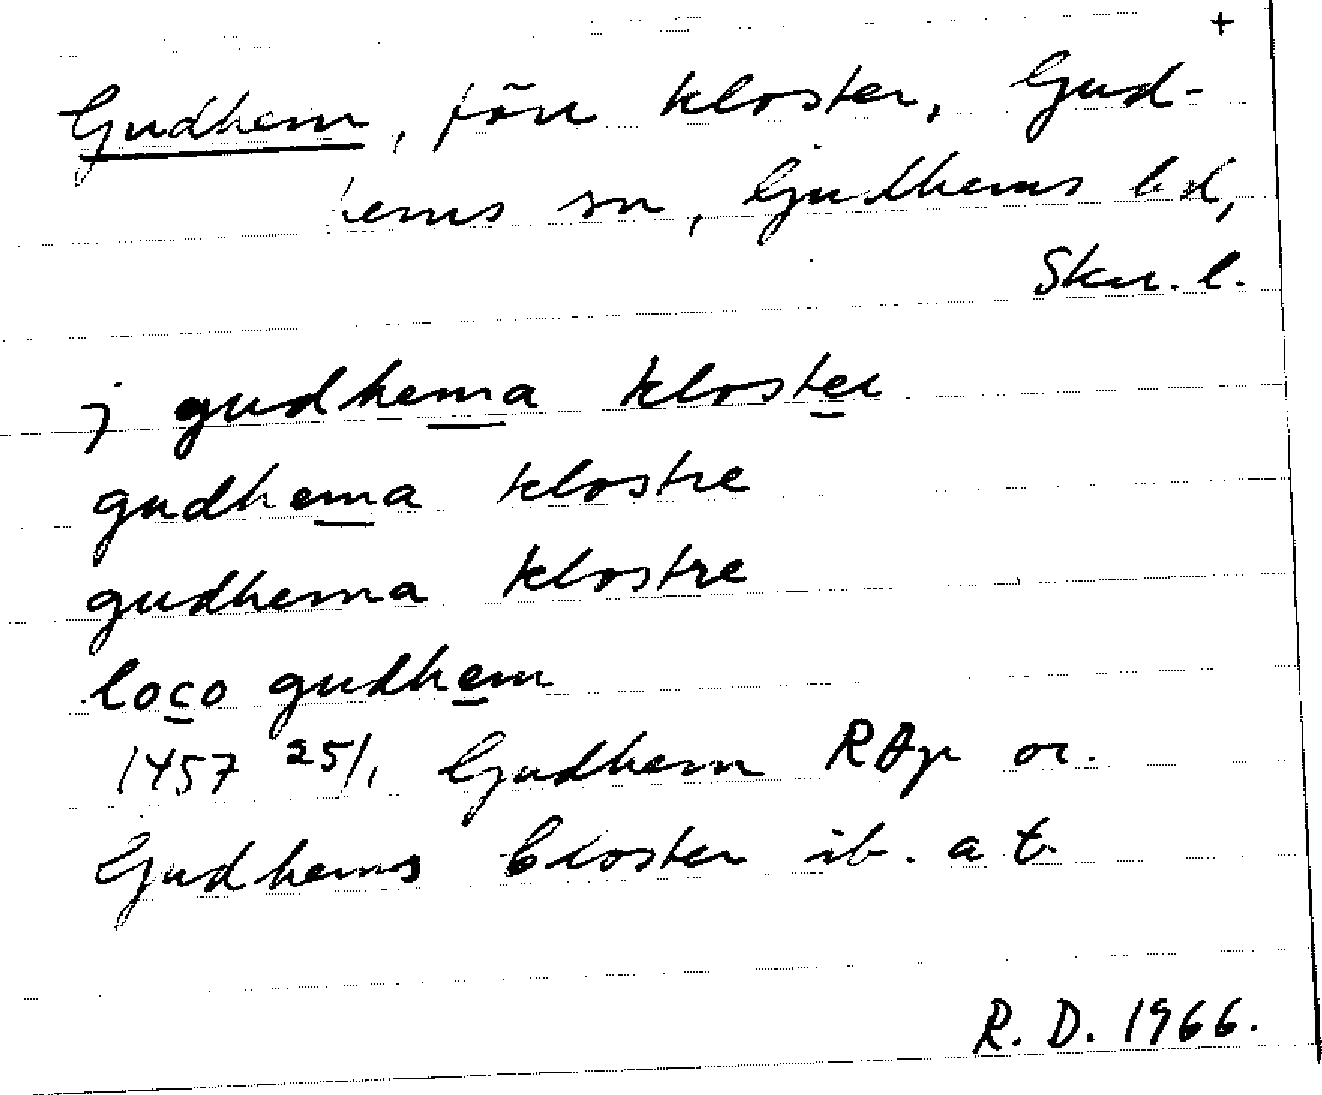 +
Gudhem, förr kloster, Gud-
hems sn, Gudhems hd,
Skar. l.
j gudhema kloster
gudhema klostre
gudhema klostre
loco gudhem
1457 25/1 Gudhem RAp or.
Gudhems closter ib. a t.
R. D. 1966.